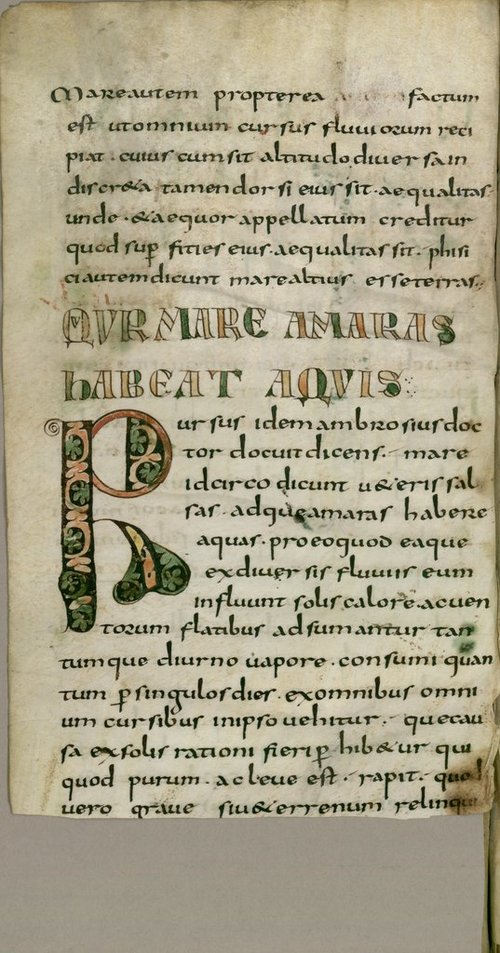 Mareautem propterea factum
est utomnium cursus fluuiorum reci
piat · cuius cumsit altitudo diuersa in
discreta tamen dorsi eius sit · aequalitas
unde · & aequor appellatum creditur
quod suꝑ fities eius · aequalitas sit · phisi
ci autem dicunt mare altius esse terras ·
QUR MARE AMARAS
hABEAT AQUIS
Rursus idem ambrosius doc
tor docuit dicens · mare
idcirco dicunt u&eris sal
sas · adque amaras habere
aquas · pro eo quod eaque
ex diuersis fluuiis eum
influunt solis calore · ac uen
torum flatibus adsumantur tan
tumque diurno uapore · consumi quan
tum ꝑ singulos dies · ex omnibus omni
um cursibus in ipso uehitur · que cau
sa ex solis rationi fieri ꝑhib&ur qui
quod purum · ac leue est · rapit · quod
uero graue siu& errenum relinqui